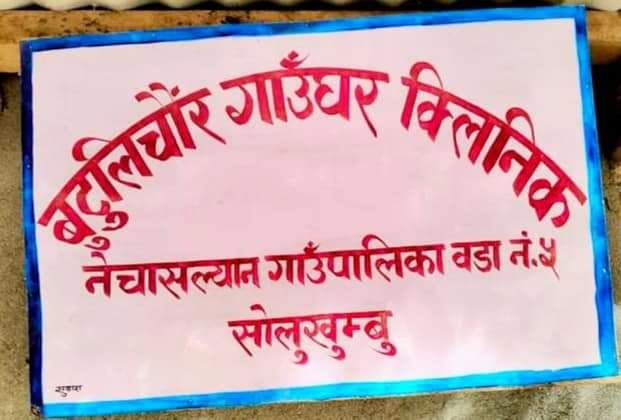 बटुलिचौर गाउँघर क्लिनिक
नेचासल्यान गाउँपालिका वडा नं.५
सोलुखुम्बु